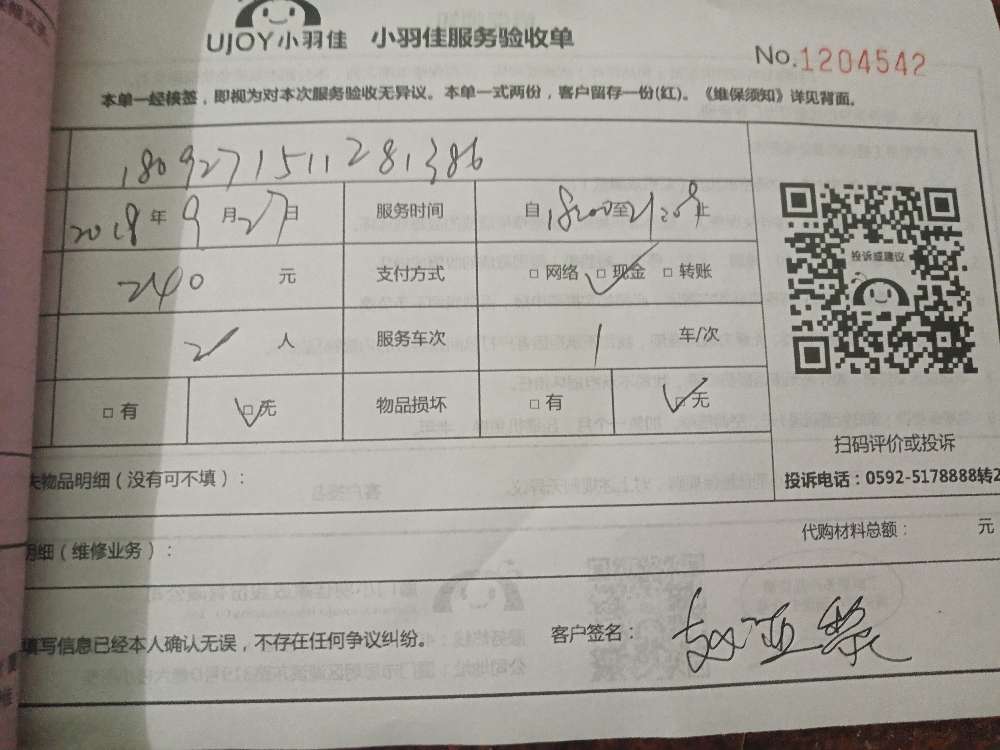 UJOY小羽佳 小羽佳服务验收单
No.1204542
本单一经核签，即视为对本次服务验收无异议。本单一式两份，客户留存一份(红)。《维保须知》详见背面。
1809271511281386
2018年9月27日 服务时间 自18:00至21:20止
投诉或建议
240元 支付方式 □ 网络 □ 现金 □ 转账
2人 服务车次 1车/次
□ 有 □ 无 物品损坏 □ 有 □ 无
扫码评价或投诉
失物品明细（没有可不填）：
投诉电话：0592-5178888转2
代购材料总额： 元
明细（维修业务）：
填写信息已经本人确认无误，不存在任何争议纠纷。 客户签名：